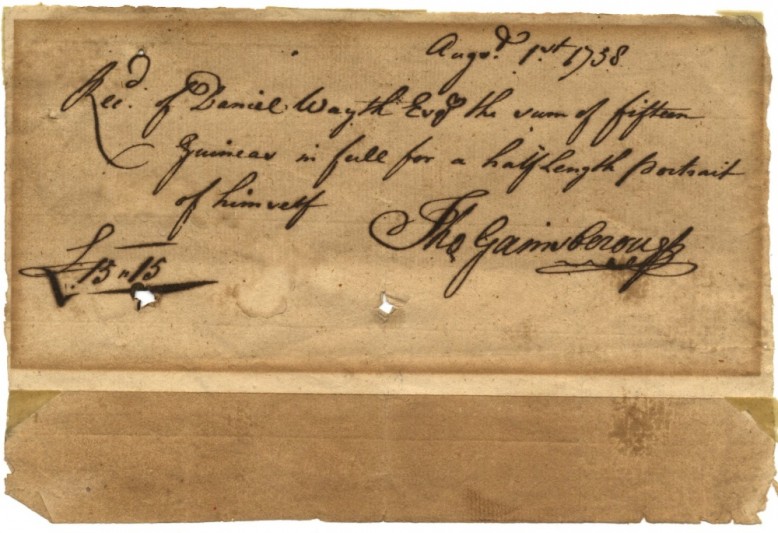 Augst. 1st 1758
Recd. of Daniel Wayth Esqr the sum of fifteen
Guineas in full for a half Length portrait
of himself
Tho Gainsborough
£15 " 15